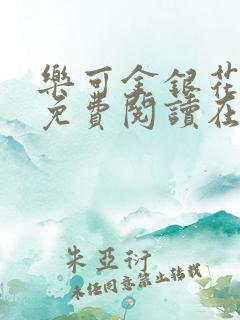 樂可金銀花
免費閱讀在
朱亞衍
未經同意禁止轉載